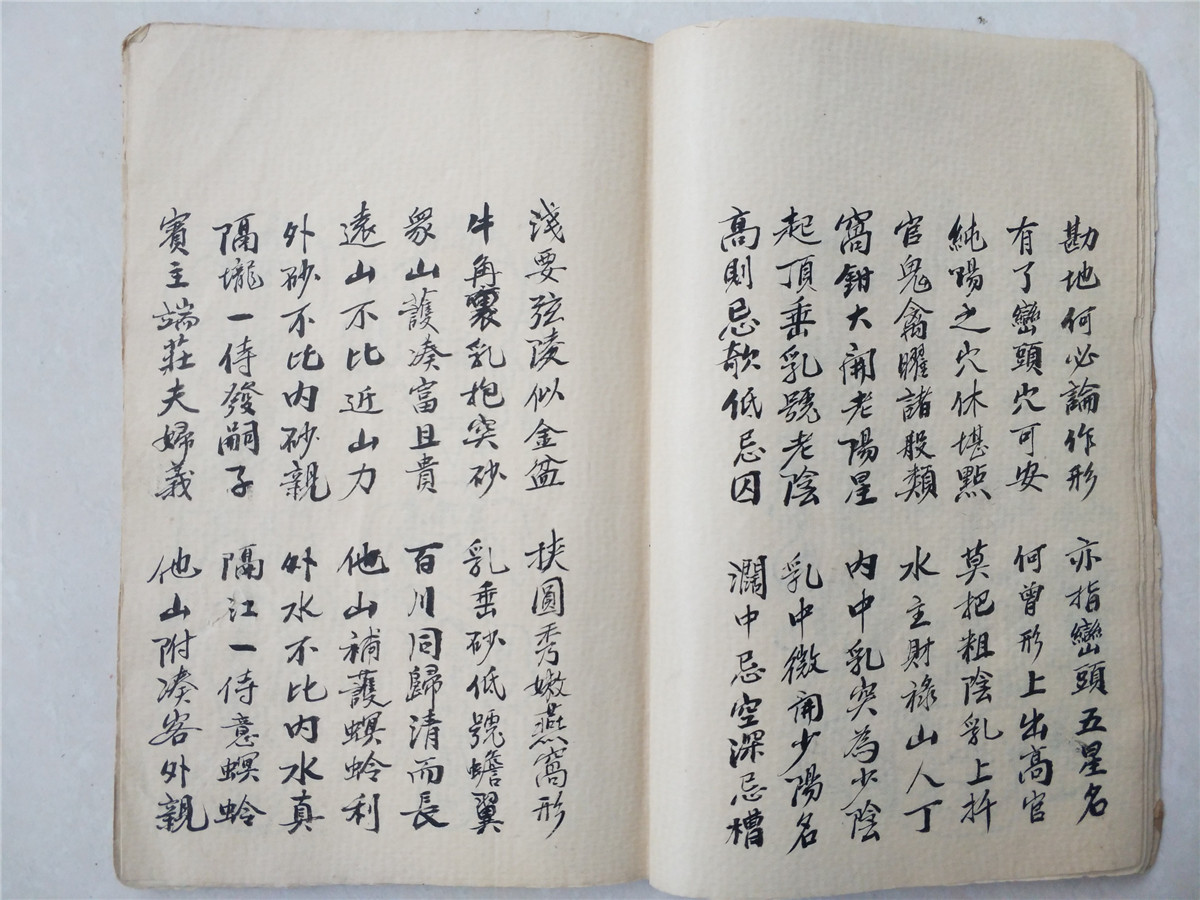 勘地何必論作形 亦指巒頭五星名
有了巒頭穴可安 何曾形上出高官
純陽之穴休堪點 莫把粗陰乳上扦
官鬼禽曜諸般類 水主財祿山人丁
窩鉗大開老陽星 內中乳突為少陰
起頂垂乳號老陰 乳中微開少陽名
高則忌欹低忌囚 濶中忌空深忌槽
淺要弦陵似金盆 挾圓秀嫩燕窩形
牛角裏乳抱突砂 乳垂砂低號蟾翼
衆山護湊富且貴 百川同歸清而長
遠山不比近山力 他山補護螟蛉利
外砂不比內砂親 外水不比內水真
隔壠一侍發嗣子 隔江一侍意螟蛉
賓主端莊夫婦義 他山附湊客外親